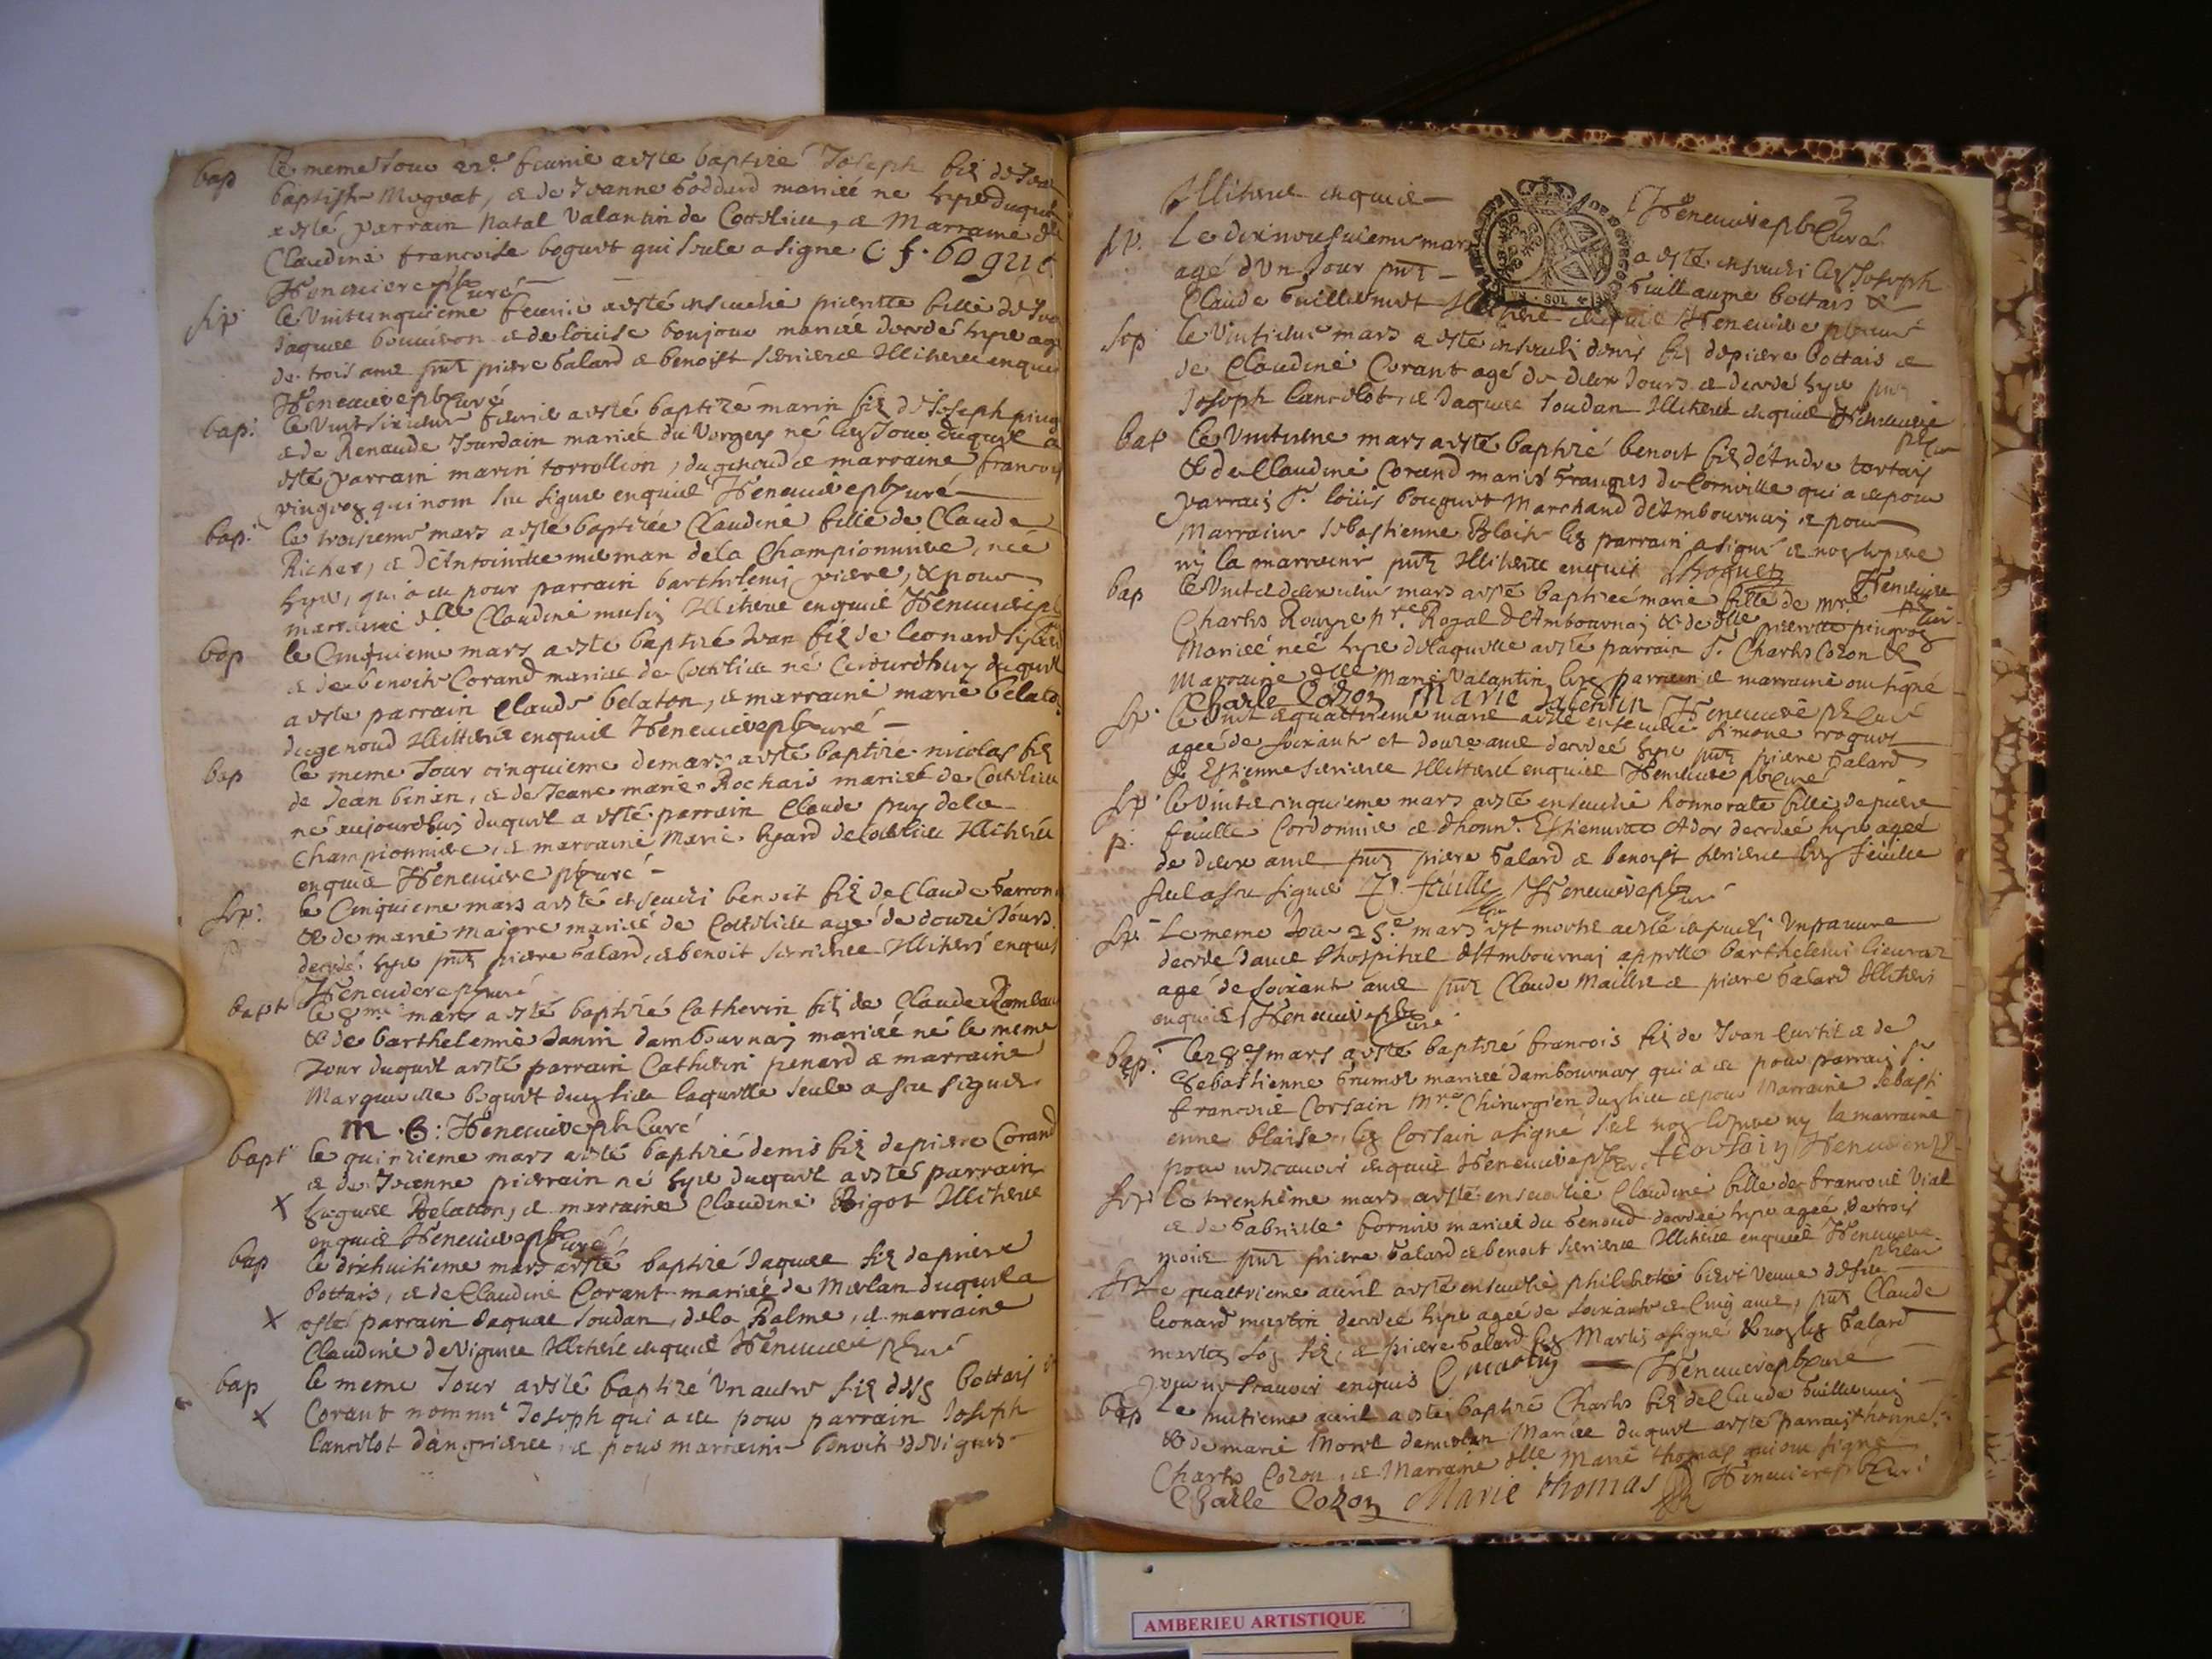 bap le meme Jour 22e feurie a este baptizé Joseph fils de Jean
baptiste Mugnat, & de Jeanne Goddard mariée ne hyer duquel
a esté parrain Natal Valantin de Cotteliue, & Marraine dlle
Claudine francoise boguet qui seule a signe C f. boguet
Heneuiere pbr Curé
sep le Vint cinquieme feurie a esté enseuelie pierrette fille de
Jaques bouuiron & de louise boujour marieé decedé hyer agé
de trois ans pnt pierre Galard & benoist seriere Illiteré enquis
Heneuiere pbr Curé
bap. le Vint sixieme feurie a esté baptizé marin fils de Joseph
& de Renaude Jourdain marieé du Vorgey né ce Jour duquel a
esté parrain marin torrollion, du genoud & marraine francois
pingeoz qui nom sceu signer enquis Heneuiere pbr Curé
bap. le troisieme mars a esté baptizée Claudine fille de Claude
Richer, & d'Antoinette mieman de la Championniere, née
hyer, qui a eu pour parrain barthelemi pierre, & pour
marraine dlle Claudine musy Illiteré enquis Heneuiere pbr
bap le Cinquieme mars a esté baptizé Jean fils de leonard
& de benoite Corand marieé de Cotteliue né Ceiourdhuy duquel
a esté parrain Claude belaton, & marraine marie belaton
du genoud Illiteré enquis Heneuiere pbr Curé
bap le meme Jour cinquieme de mars a esté baptizé nicolas fils
de Jean binin, & de Jeane marie Rochais marieé de Cotteliue
né aujourdhuy duquel a esté parrain Claude puy de la
Championniere, & marraine Marie bysard de Cotteliue Illiterée
enquis Heneuiere pbr Curé
sep. le Cinquieme mars a esté enseueli benoit fils de Claude Garron
& de marie maigre marieé de Cotteliue agé de douze Jours
decedé hyer pnt pierre Galard, & benoit seriere Illiteré enquis
Heneuiere pbr Curé
bapt le 8me mars a esté baptizé Catherin fils de Claude Rombau
& de barthelemie Janin dambournay marieé né le meme
Jour duquel a esté parrain Catherin penard & marraine
Marguerite boguet du lieu laquelle seule a sceu signer
M. B: Heneuiere pbr Curé
bapt le quinzieme mars a esté baptizé denis fils de pierre Corand
& de Jeanne pierrain né hyer duquel a esté parrain
X hugues Belaton, & marraine Claudine Bigot Illiteré
enquis Heneuiere pbr Curé
bap le dixhuitieme mars a esté baptizé Jaques fils de pierre
bottais, & de Claudine Corant marieé de Merlan duquel a
X esté parrain Jaques soudan, de la Balme, & marraine
Claudine de Vigne Illiteré enquis Heneuiere pbr Curé
bap le meme Jour a esté baptizé Un autre fils desd bottais &
X Corant nommé Joseph qui a eu pour parrain Joseph
lancelot dangrieres & pour marraine benoite de Vignes
3
Illiteré enquis Heneuiere pbr Curé
sep. Le dixneufuieme mars a esté enseueli led Joseph
agé d'Vn Jour pnt Guillaume bottais &
Claude Guillermet Illiteré enquis Heneuiere pbr Curé
VN·SOL
sep le Vintieme mars a esté enseueli denis fils de piere bottais &
de Claudine Corant agé de deux Jours & decedé hyer pnt
Joseph lancelot & Jaques soudan Illiteré enquis Heneuiere
pbr Cu
bap le Vintieme mars a esté baptizé benoit fils d'Andre tortais
& de Claudine Corand mariés Granges de Corneille qui a eu pour
parrain Sr. loüis boguet Marchand d'Ambournay & pour
Marraine sebastienne Blaise led parrain a signé & non le pere
ni la marraine pnt Illiteré enquis LBoguet
Heneuiere
bap le Vint deuxieme mars a esté baptizee marie fille de mre
Charles Rouyer pr. Royal d'Ambournay & de dlle pierrette pingeoz
Marieé née hyer de laquelle a esté parrain Sr. Charles Cozon &
Marraine dlle Marie Valantin, lesd parrain & marraine ont signé
Charle Cozon Marie Valentin Heneuiere pbr Curé
sep. le Vint & quattrieme mars a esté enseuelie simone croquet
ageé de soixante et douze ans decedeé hyer pnt piere Galard
& Estienne seriere Illiteré enquis Heneuiere pbr Curé
sep. le Vint & cinquieme mars a esté enseuelie honnorate fille de piere
p. feuille Cordonnier & d'honn. Estiennete Ador decedeé hyer ageé
de deux ans pnt piere Galard & benoist seriere led feüille
seul a sceu signer P. feüille Heneuiere pbr Curé
sep. Le meme Jour 25.e mars est mort & a esté enseueli Vn pauure
decedé dans l'hospital d'Ambournay appelle barthelemi lieuraz
agé de soixante ans pnt Claude Maillet & piere Galard Illiteré
enquis Heneuiere pbr Curé
bap. Le 28e mars a esté baptizé francois fils de Jean Curtil & de
Sebastienne brunet marieé dambournay qui a eu pour parrain Sr.
francois Corsain Mre. Chirurgien dud lieu & pour Marraine sebasti
enne blaise, led Corsain a signé seul non le pere ny la marraine
pour ne scauoir enquis Heneuiere pbr Curé f Corsain Heneuiere
sep le trentieme mars a esté enseuelie Claudine fille de francois Vial
& de Gabrielle fornier marieé du Genoud decedeé hyer ageé de trois
mois pnt piere Galard & benoit seriere Illiteré enquis Heneuiere
pbr Cur
sep Le quattrieme auril a esté enseuelie philiberte biert Veuue de feu
leonard martin decedeé hyer ageé de soixante & Cinq ans, pnt Claude
martin son fils, & piere Galard led Martin a signé & non led Galard
pour ne scauoir enquis C martin Heneuiere pbr Curé
bap Le huitieme auril a esté baptizé Charles fils de Claude Guillermin
& de marie Morel de merlan Marieé duquel a esté parrain honnes.
Charles Cozon, & Marraine dlle Marie thomas qui ont signé
Charle Cozon Marie thomas Heneuiere pbr Curé
AMBERIEU ARTISTIQUE